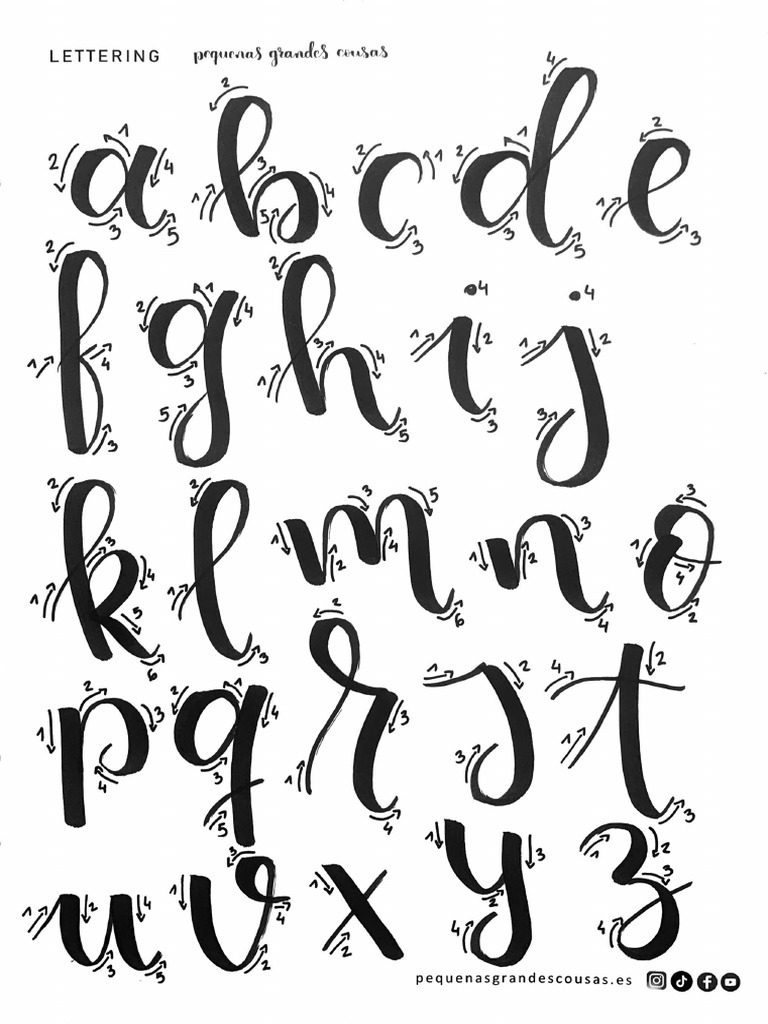 LETTERING pequenas grandes cousas
a b c d e
f g h i j
k l m n o
p q r s t
u v x y z
pequenasgrandescousas.es